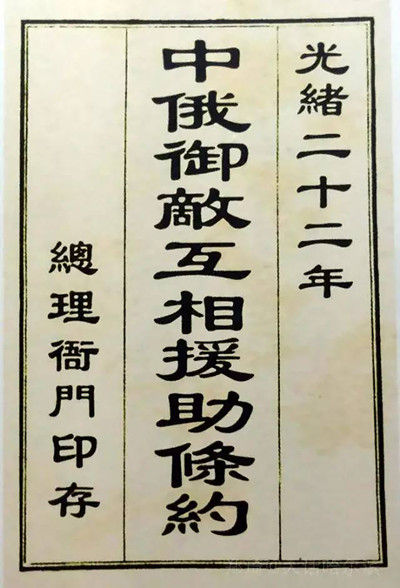 光緒二十二年
中俄御敵互相援助條約
總理衙門印存